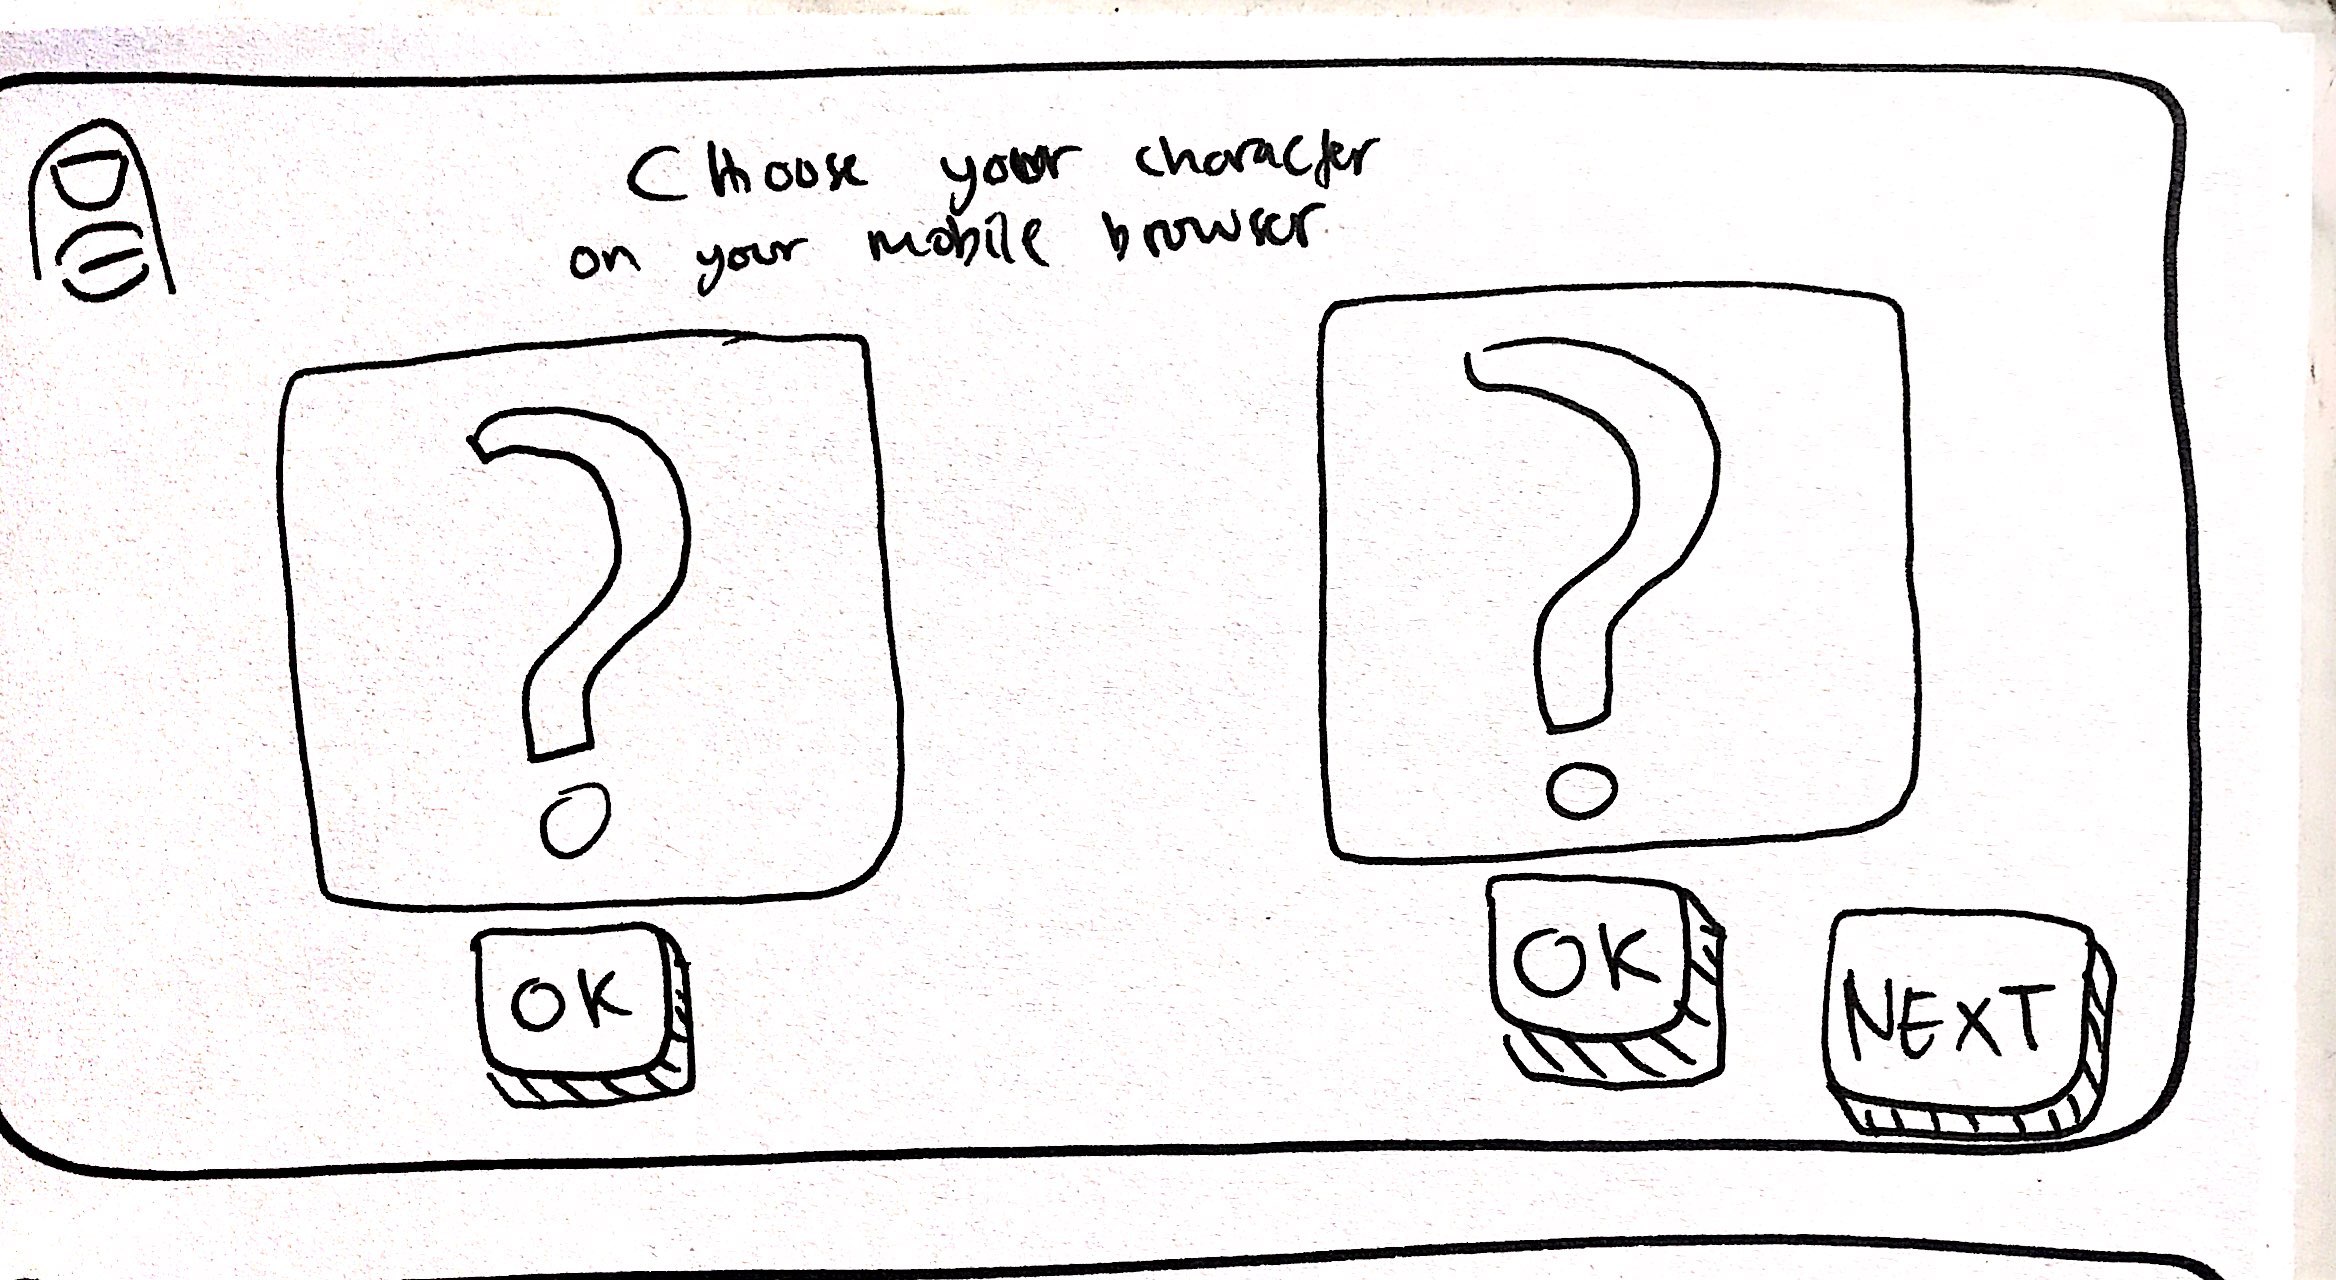 Choose your character
on your mobile browser
?
?
OK
OK
NEXT